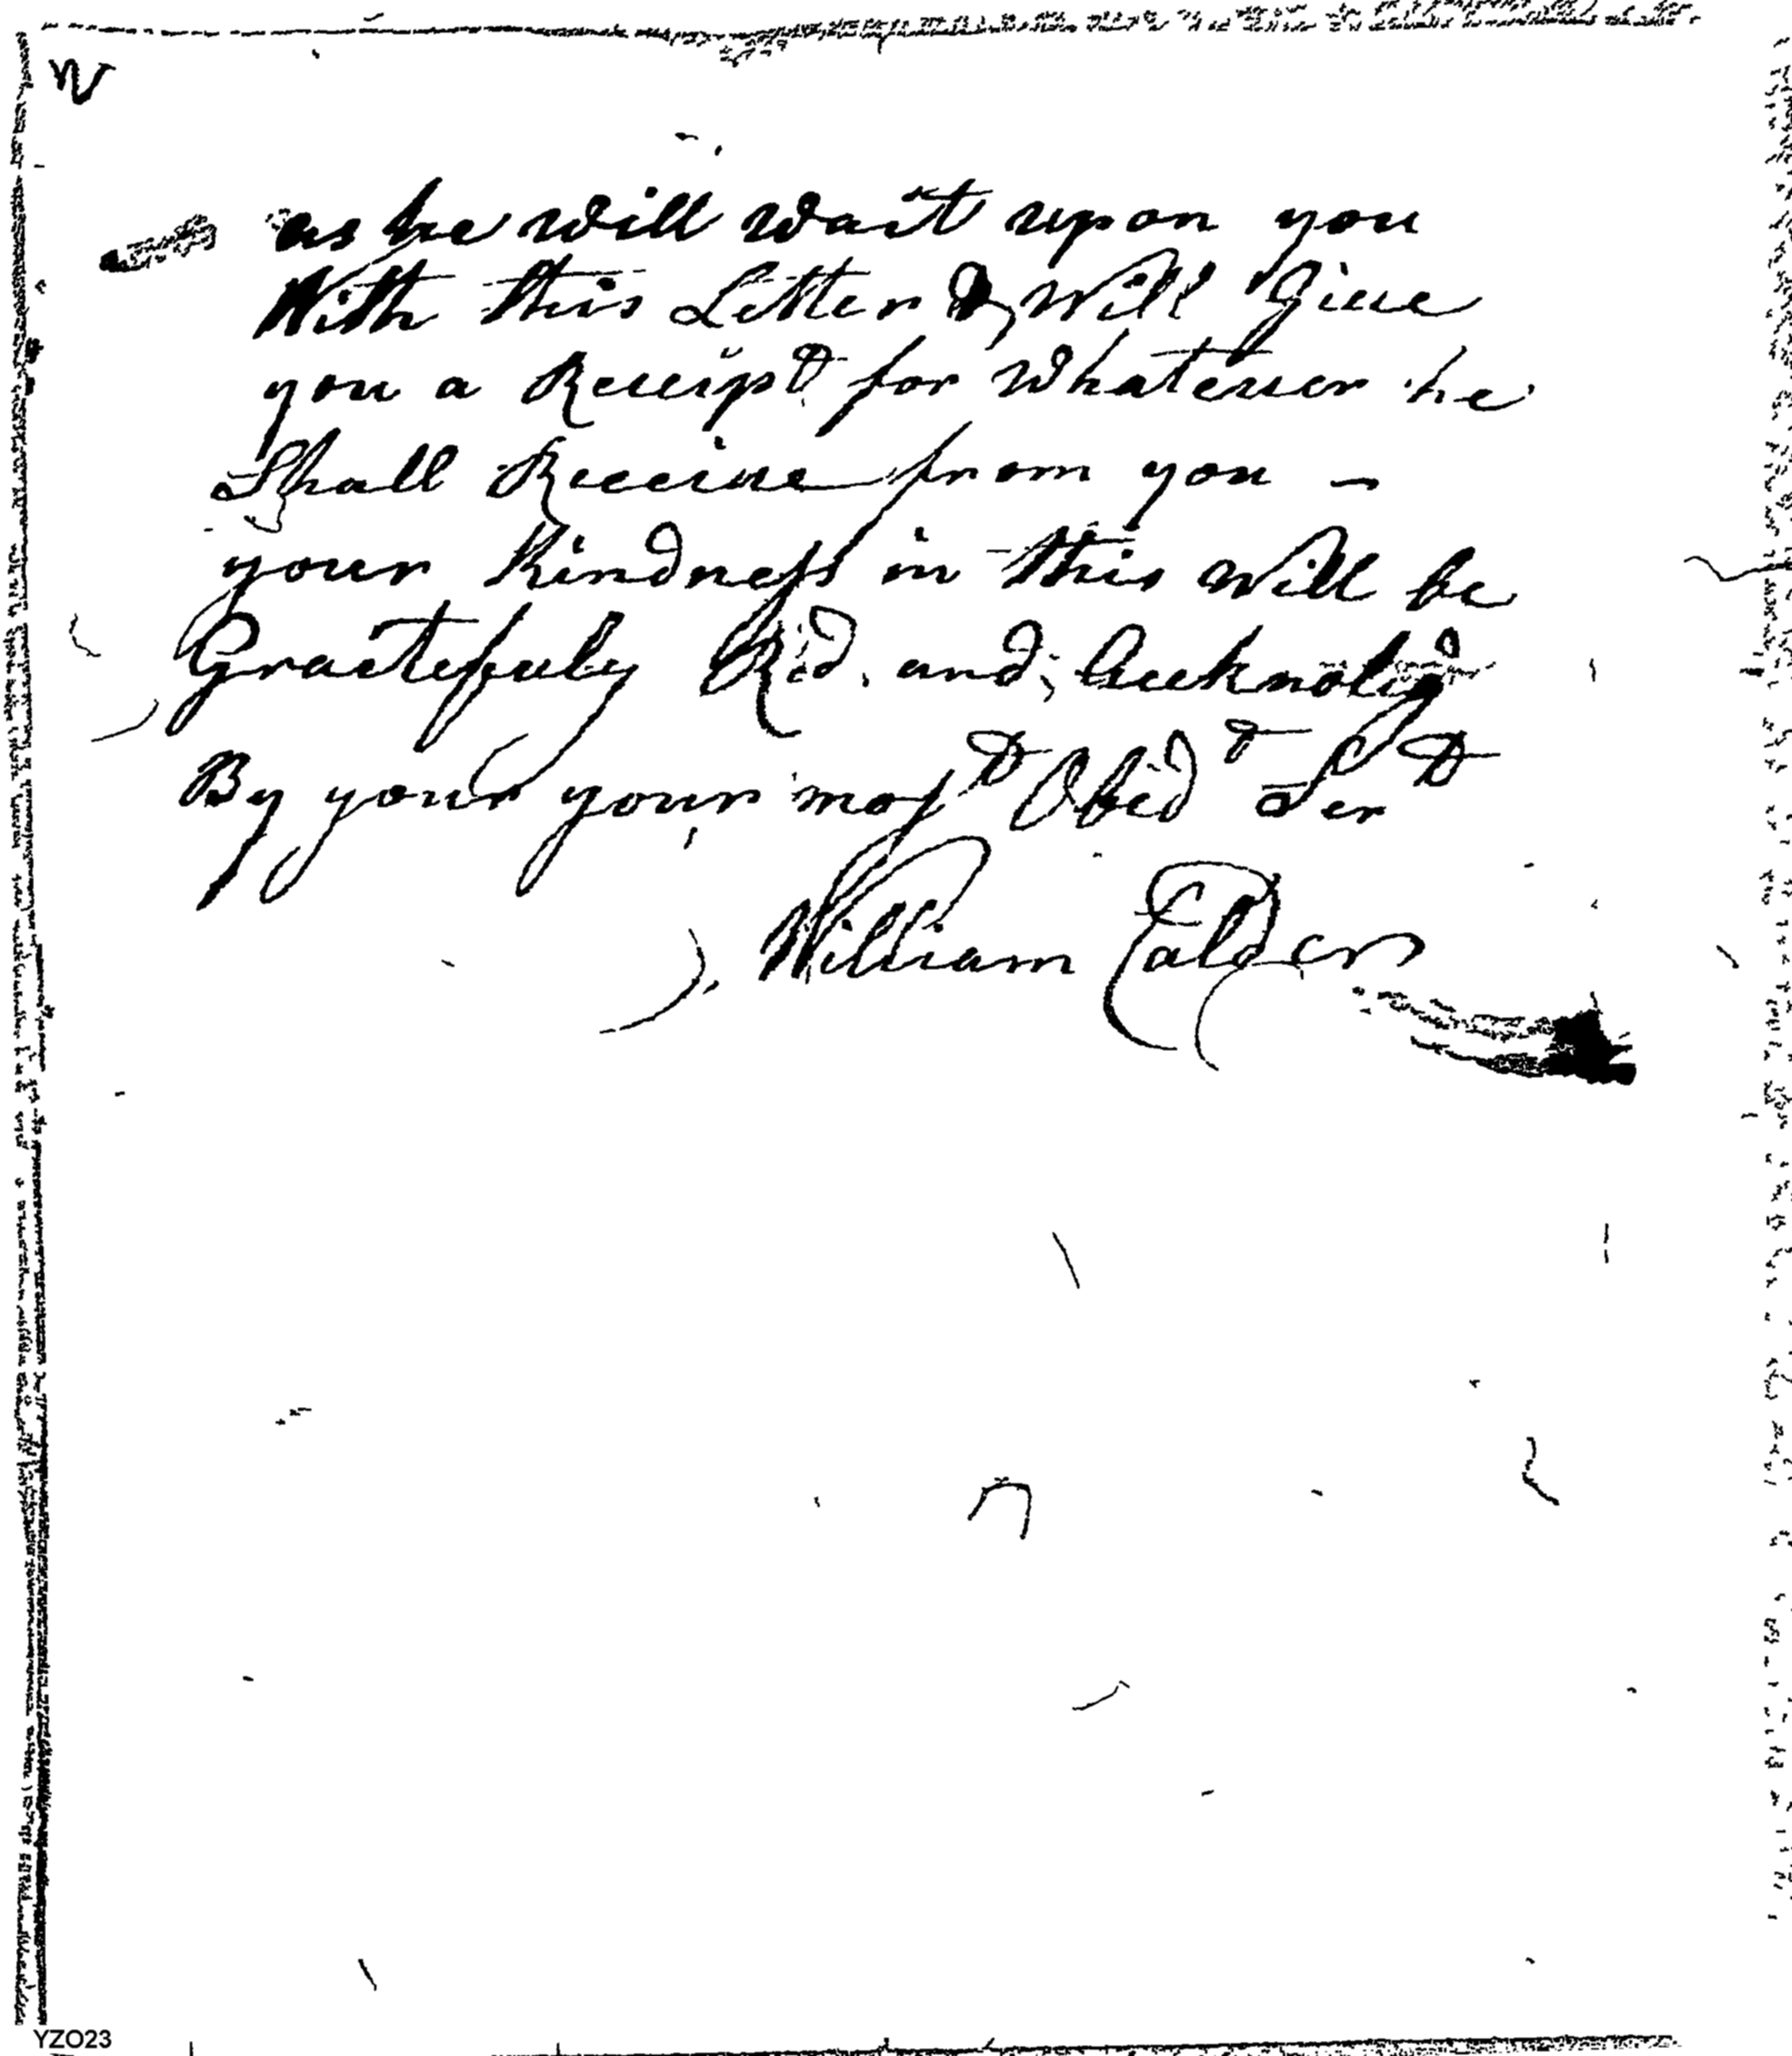 as he will wait upon you
With this Letter & will Give
you a Receipt for whatever he
Shall Receive from you –
your Kindness in this will be
Gratefuly Rd. and, Acknolgd
By your your most Obedt Sert
William Calder
YZO23